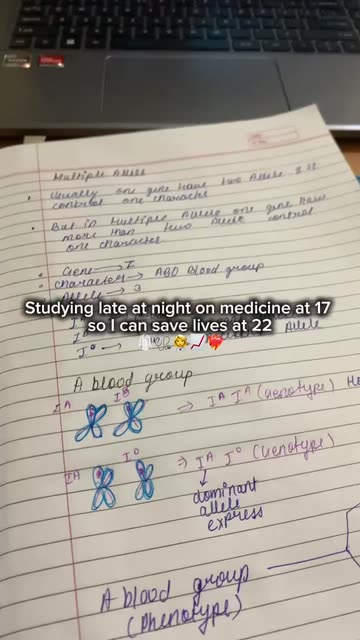 Multiple Allele
• Usually one gene have two Allele & it
control one character
• But in Multiple Allele one gene have
more than two Allele control
one character
• Gene → I
• Character → ABO Blood group
Allele → 3
Studying late at night on medicine at 17
so I can save lives at 22
I° → Allele
A blood group
IA IB
→ IA IA (Genotype)
IA I°
→ IA I° (Genotype)
dominant
allele
express
A blood group
(Phenotype)